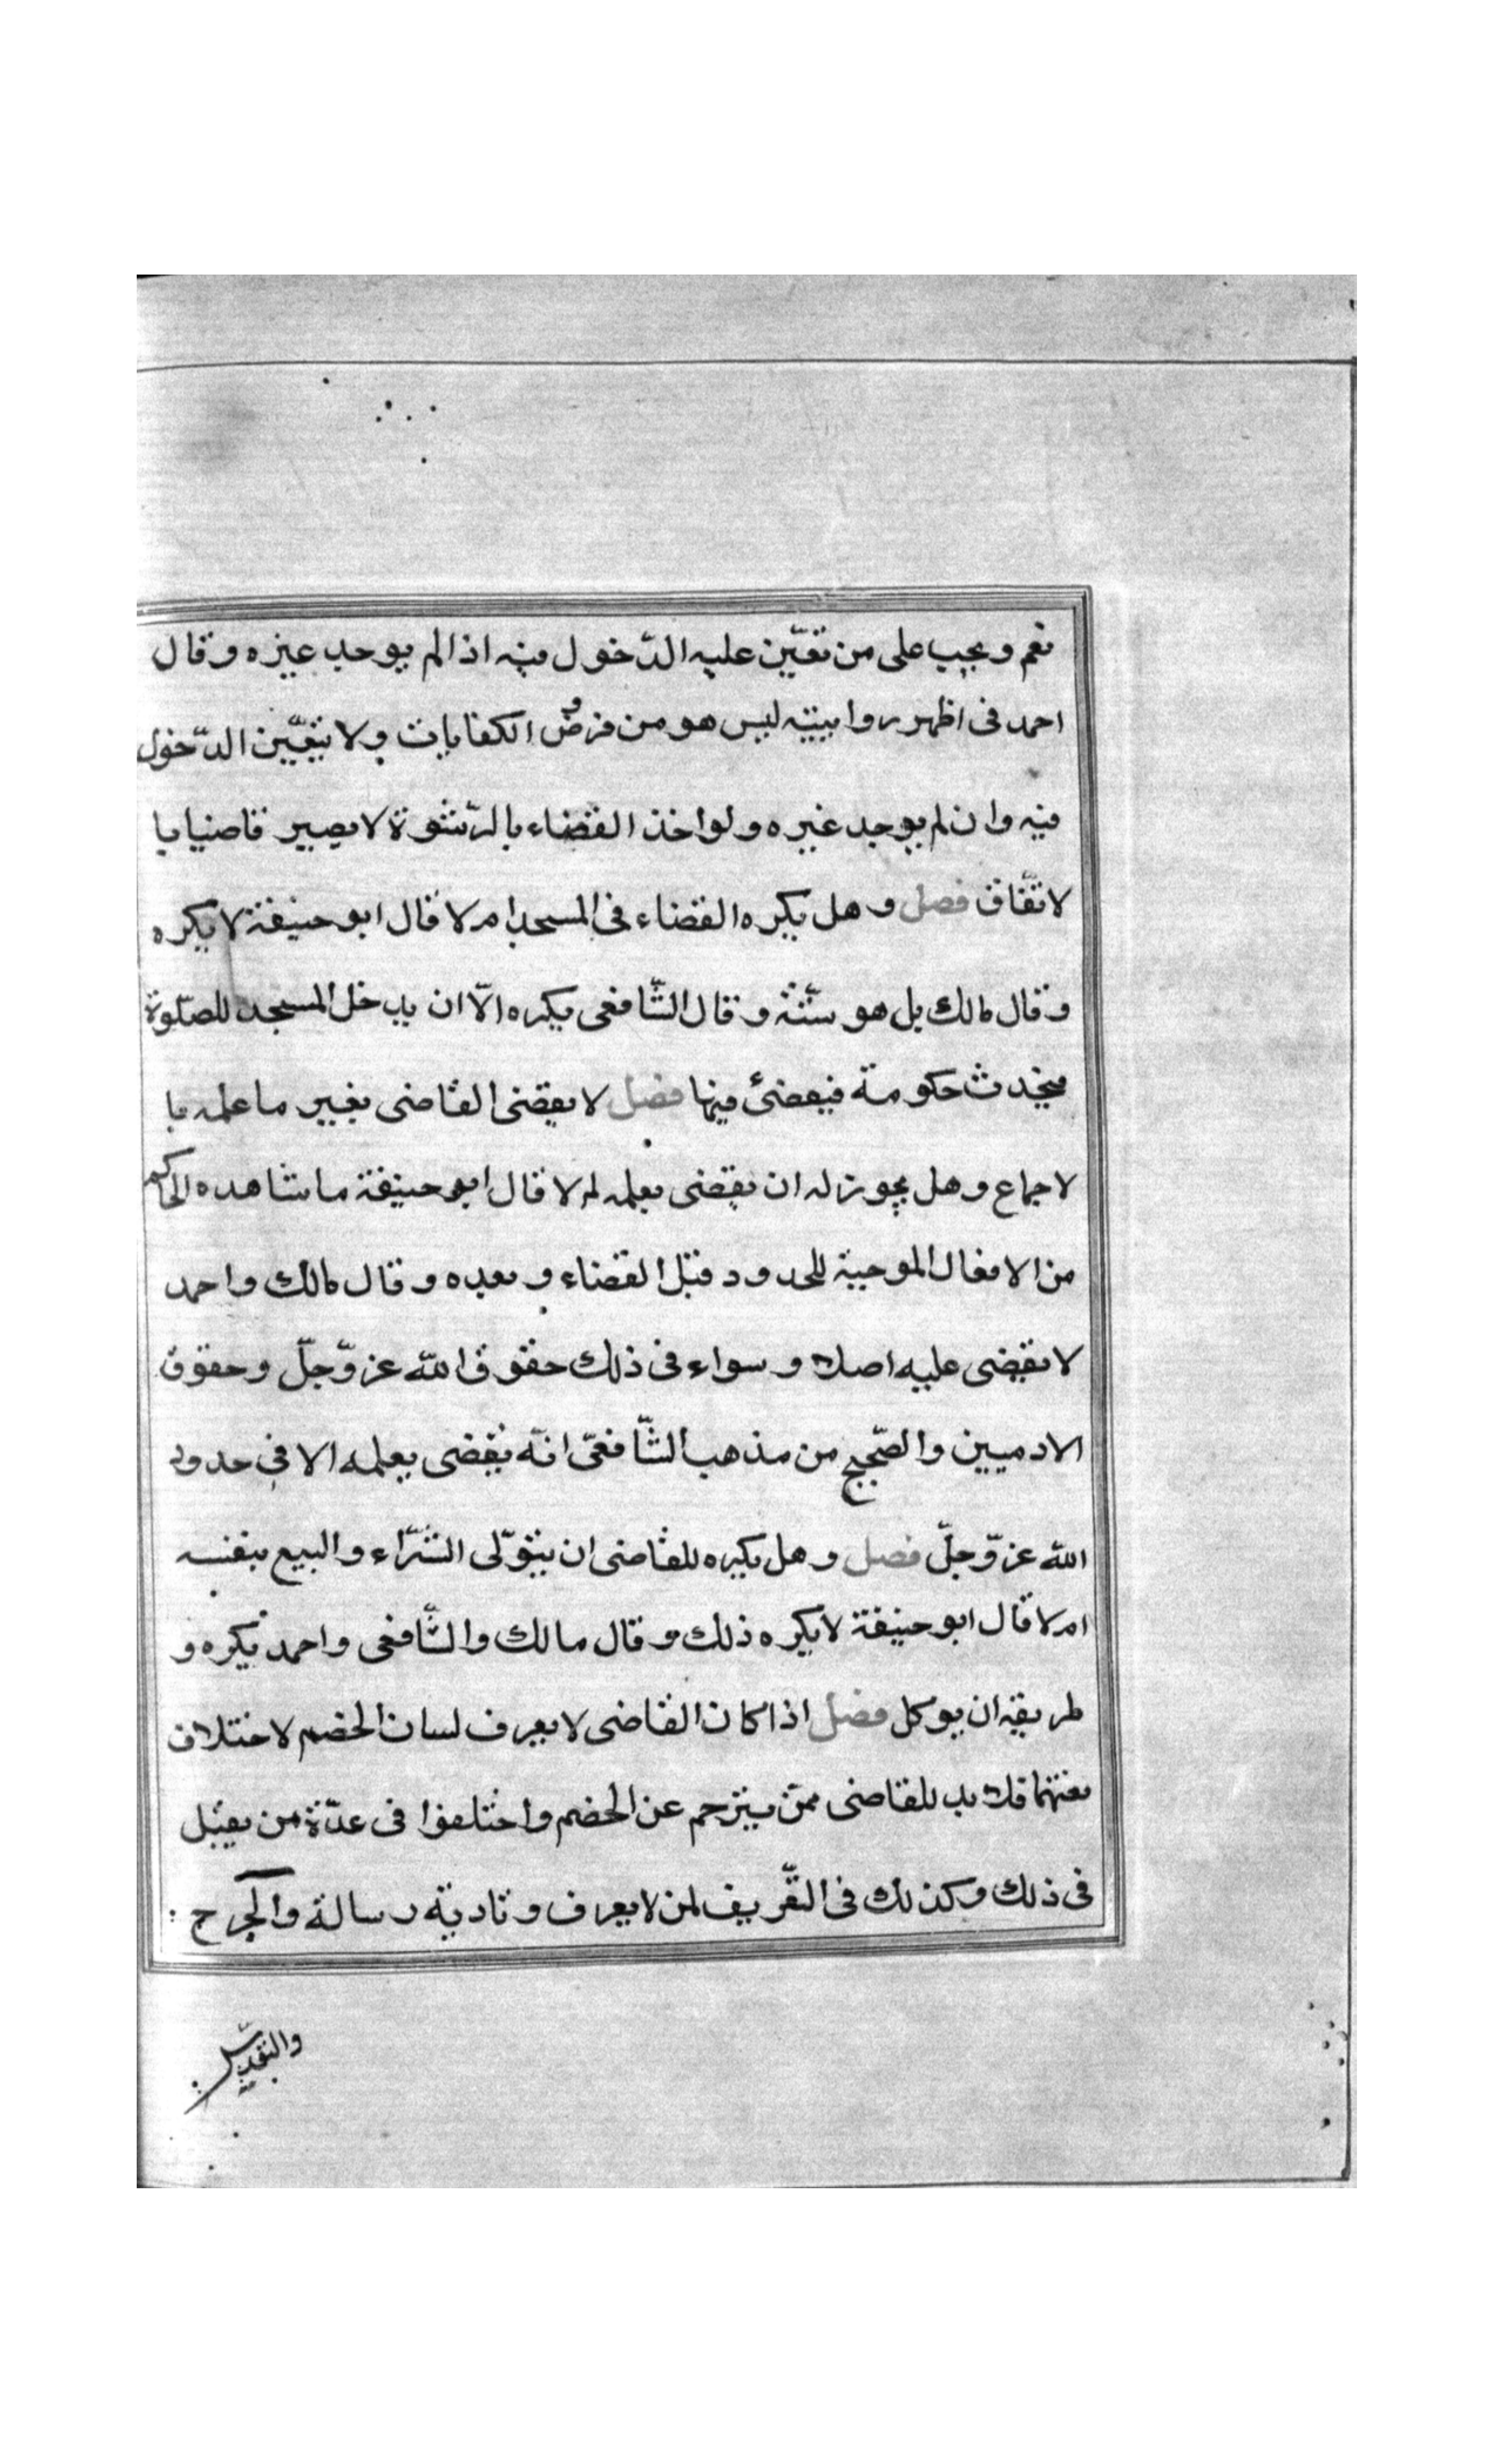 نعم ويجب على من تعيّن عليه الدّخول فيه اذا لم يوجد غيره وقال
احمد فى اظهر روايتيه ليس هو من فروض الكفايات ولا يتعيّن الدّخول
فيه وان لم يوجد غيره ولو اخذ القضاء بالرّشوة لا يصير قاضيا با
لاتّفاق فصل وهل يكره القضاء فى المسجد ام لا قال ابو حنيفة لا يكره
وقال مالك بل هو سنّة وقال الشّافعى يكره الّا ان يدخل المسجد للصّلوة
فيحدث حكومة فيقضئ فيها فصل لا يقضى القاضى بغير ما علمه با
لاجماع وهل يجوز له ان يقضى بعلمه ام لا قال ابو حنيفة ما شاهده الحاكم
من الافعال الموجبة للحدود قبل القضاء وبعده وقال مالك واحمد
لا يقضى عليه اصلا وسواء فى ذلك حقوق الله عزّ وجلّ وحقوق
الادميين والصّحيح من مذهب الشّافعىّ انّه يقضى بعلمه الا فى حدود
الله عزّ وجلّ فصل وهل يكره للقاضى ان يتولّى الشّراء والبيع بنفسه
ام لا قال ابو حنيفة لا يكره ذلك وقال مالك والشّافعى واحمد يكره و
طريقه ان يوكل فصل اذا كان القاضى لا يعرف لسان الخصم لاختلاف
لغتهما فلا بد للقاضى ممّن يترجم عن الخصم واختلفوا فى عدّة من يقبل
فى ذلك وكذلك فى التعّريف لمن لا يعرف وتادية رسالة والجرح
والتعديل